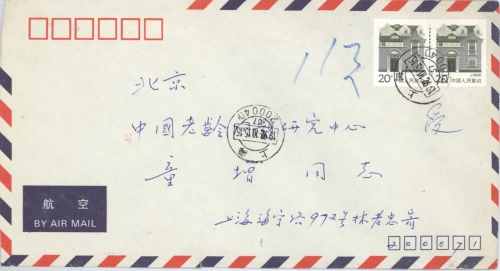 113
20分 中国人民邮政
20分 中国人民邮政
北京
中国老龄 研究中心
童增 同志
上海
航空
BY AIR MAIL
上海海宁路972号林老忠寄
200071